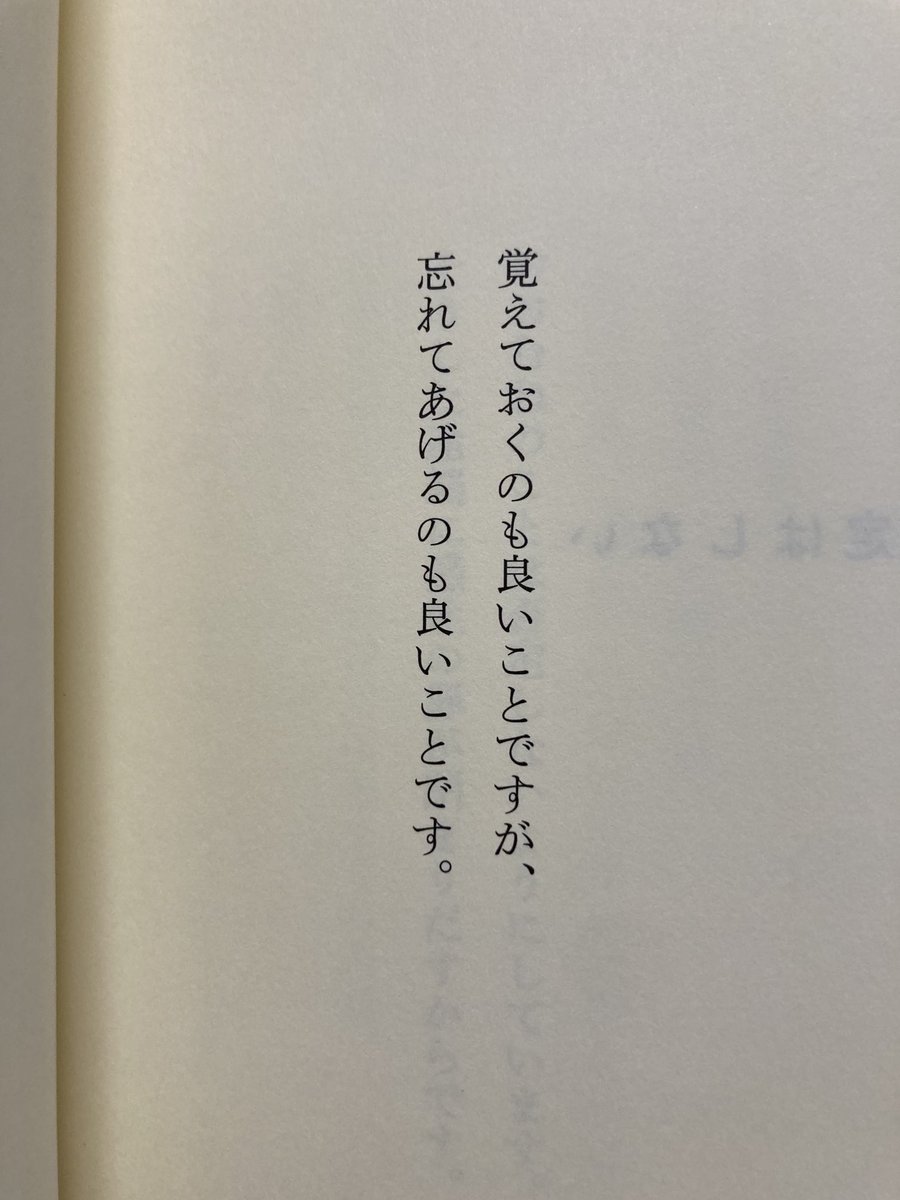 覚えておくのも良いことですが、
忘れてあげるのも良いことです。